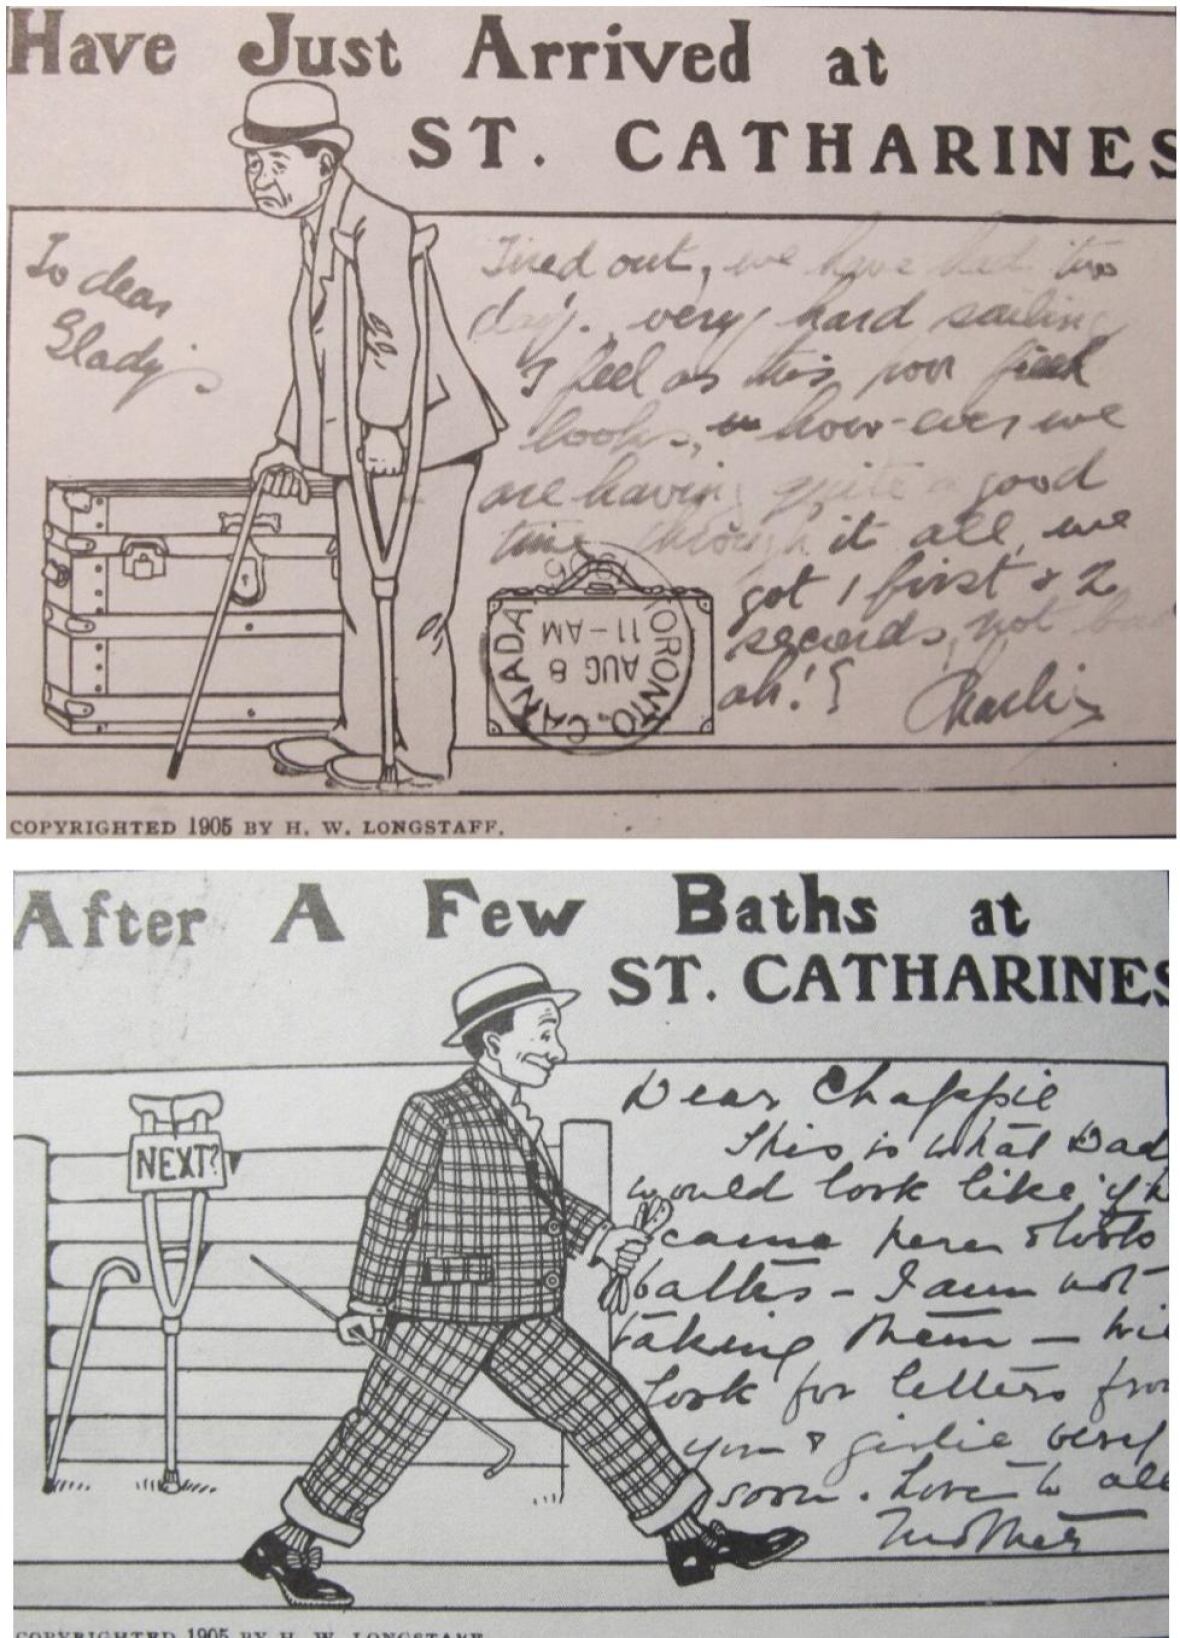 Have Just Arrived at
ST. CATHARINES
To dear
Glady
Tired out, we have had two
day's. very hard sailing
I feel as this poor
looks, how-ever we
are having quite a good
time through it all, we
got 1 first & 2
seconds, not bad
ah!
Charlie
TORONTO, CANADA
AUG 8
11-AM
COPYRIGHTED 1905 BY H. W. LONGSTAFF.
After A Few Baths at
ST. CATHARINES
NEXT?
Dear Chappie
This is what Dad
would look like if h
came here & took
baths - I am not
taking them -
look for letters from
you & girlie very
soon. Love to all
Mother
COPYRIGHTED 1905 BY H. W. LONGSTAFF